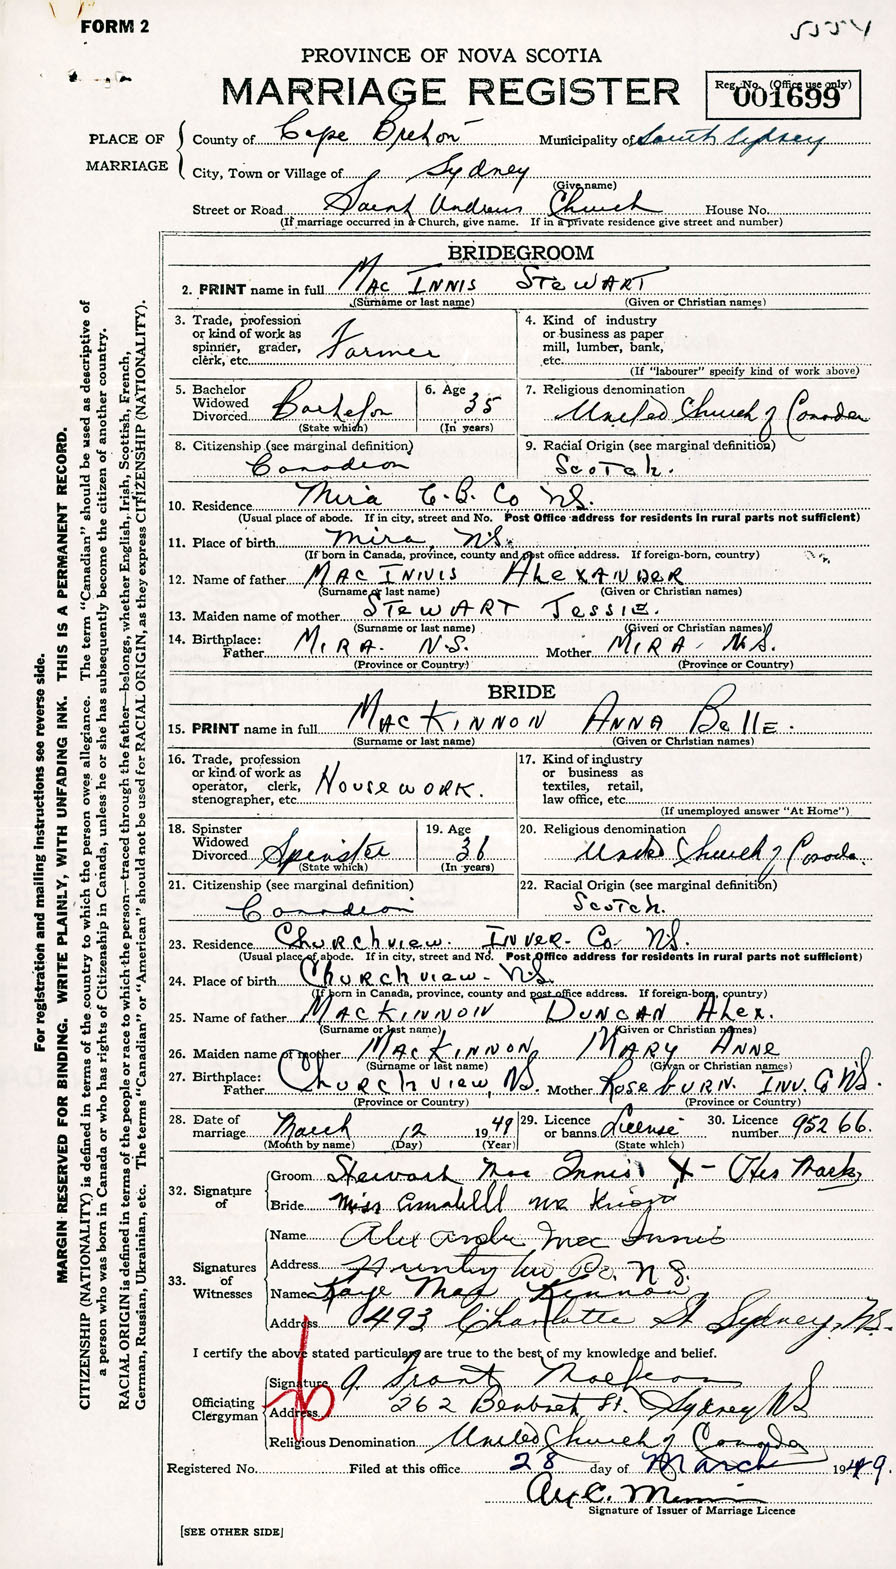 FORM 2
5554
PROVINCE OF NOVA SCOTIA
MARRIAGE REGISTER
Reg. No. (Office use only)
001699
PLACE OF MARRIAGE
County of Cape Breton Municipality of South Sydney
City, Town or Village of Sydney
(Give name)
Street or Road Saint Andrews Church House No.
(If marriage occurred in a Church, give name. If in a private residence give street and number)
BRIDEGROOM
2. PRINT name in full MacInnis Stewart
(Surname or last name) (Given or Christian names)
3. Trade, profession or kind of work as spinner, grader, clerk, etc. Farmer
4. Kind of industry or business as paper mill, lumber, bank, etc.
(If "labourer" specify kind of work above)
5. Bachelor Widowed Divorced Bachelor
(State which)
6. Age 35
(In years)
7. Religious denomination United Church of Canada
8. Citizenship (see marginal definition) Canadian
9. Racial Origin (see marginal definition) Scotch.
10. Residence Mira C.B. Co N.S.
(Usual place of abode. If in city, street and No. Post Office address for residents in rural parts not sufficient)
11. Place of birth Mira, N.S.
(If born in Canada, province, county and post office address. If foreign-born, country)
12. Name of father MacInnis Alexander
(Surname or last name) (Given or Christian names)
13. Maiden name of mother Stewart Jessie.
(Surname or last name) (Given or Christian names)
14. Birthplace: Father Mira. N.S. Mother Mira. N.S.
(Province or Country) (Province or Country)
BRIDE
15. PRINT name in full MacKinnon Anna Belle.
(Surname or last name) (Given or Christian names)
16. Trade, profession or kind of work as operator, clerk, stenographer, etc. Housework.
17. Kind of industry or business as textiles, retail, law office, etc.
(If unemployed answer "At Home")
18. Spinster Widowed Divorced Spinster
(State which)
19. Age 36
(In years)
20. Religious denomination United Church of Canada.
21. Citizenship (see marginal definition) Canadian
22. Racial Origin (see marginal definition) Scotch.
23. Residence Churchview. Inver. Co. N.S.
(Usual place of abode. If in city, street and No. Post Office address for residents in rural parts not sufficient)
24. Place of birth Churchview. N.S.
(If born in Canada, province, county and post office address. If foreign-born, country)
25. Name of father MacKinnon Duncan Alex.
(Surname or last name) (Given or Christian names)
26. Maiden name of mother MacKinnon Mary Anne
(Surname or last name) (Given or Christian names)
27. Birthplace: Father Churchview, N.S. Mother Roseburn. Inv. Co N.S.
(Province or Country) (Province or Country)
28. Date of marriage March 12 1949
(Month by name) (Day) (Year)
29. Licence or banns License
(State which)
30. Licence number 95266.
32. Signature of
Groom Stewart Mac Innis X - His Mark
Bride Miss
33. Signatures of Witnesses
Name Alexander Mac Innis
Address N.S.
Name Kaye MacKinnon
Address 493 Charlotte St Sydney, N.S.
I certify the above stated particulars are true to the best of my knowledge and belief.
Officiating Clergyman
Signature Grant
Address 262 St. Sydney NS
Religious Denomination United Church of Canada
Registered No. Filed at this office 28 day of March 1949.
Signature of Issuer of Marriage Licence
[SEE OTHER SIDE]
For registration and mailing instructions see reverse side.
MARGIN RESERVED FOR BINDING. WRITE PLAINLY, WITH UNFADING INK. THIS IS A PERMANENT RECORD.
CITIZENSHIP (NATIONALITY) is defined in terms of the country to which the person owes allegiance. The term "Canadian" should be used as descriptive of
a person who was born in Canada or who has rights of Citizenship in Canada, unless he or she has subsequently become the citizen of another country.
RACIAL ORIGIN is defined in terms of the people or race to which the person—traced through the father—belongs, whether English, Irish, Scottish, French,
German, Russian, Ukrainian, etc. The terms "Canadian" or "American" should not be used for RACIAL ORIGIN, as they express CITIZENSHIP (NATIONALITY).